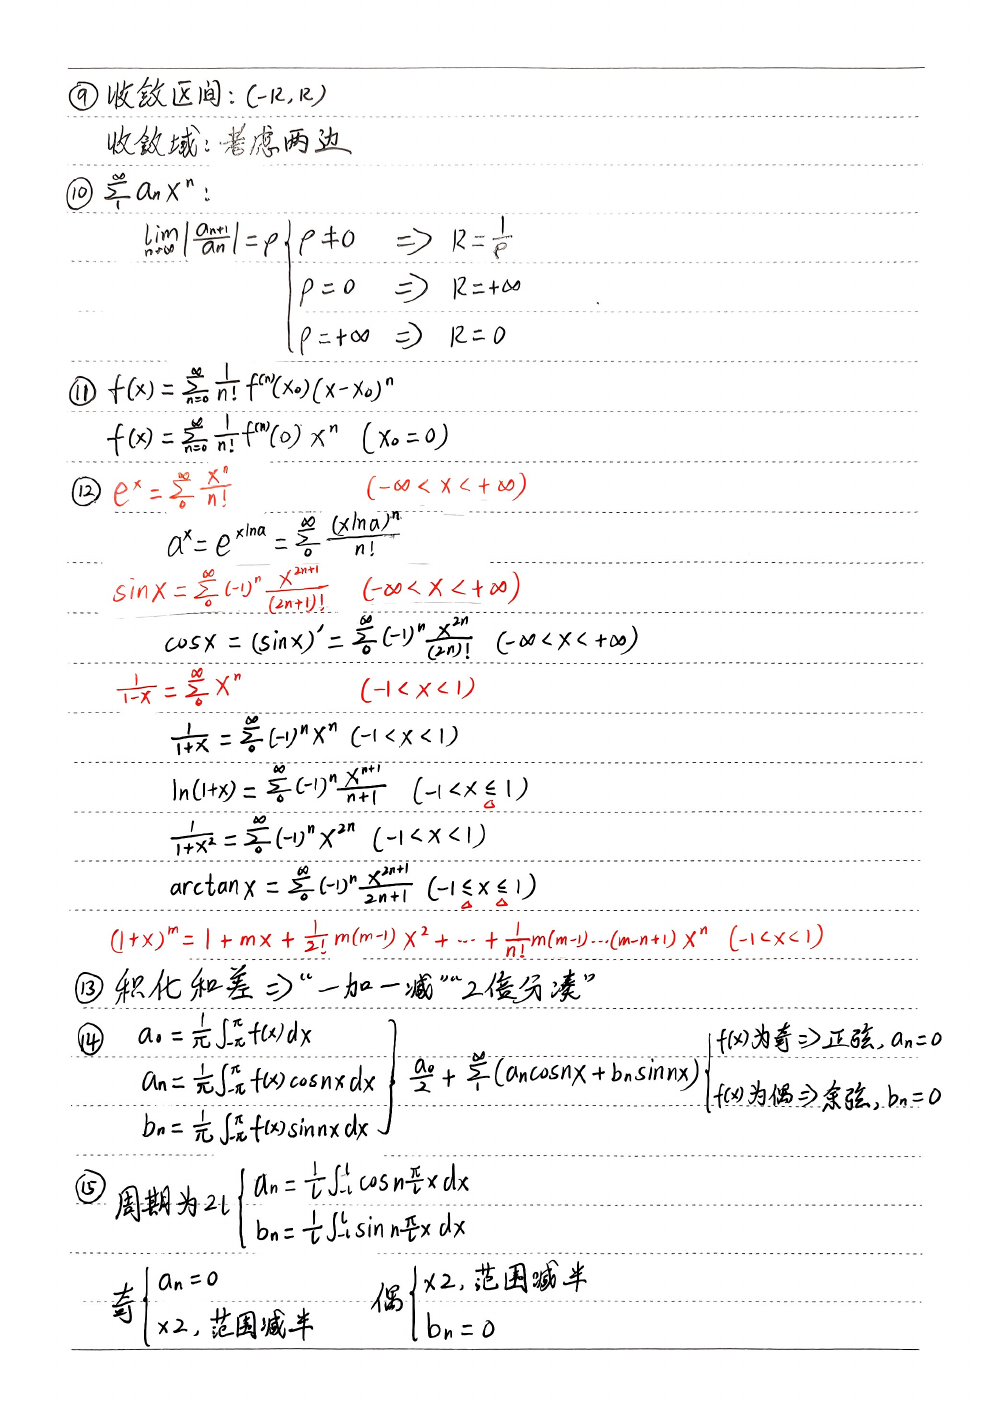 ⑨ 收敛区间: (-R, R)
收敛域: 考虑两边
⑩ $\sum_{1}^{\infty} a_n x^n$:
$\lim_{n\to\infty} \left|\frac{a_{n+1}}{a_n}\right| = \rho$ { $\rho \neq 0$ ⇒ $R = \frac{1}{\rho}$
$\rho = 0$ ⇒ $R = +\infty$
$\rho = +\infty$ ⇒ $R = 0$
⑪ $f(x) = \sum_{n=0}^{\infty} \frac{1}{n!} f^{(n)}(x_0)(x-x_0)^n$
$f(x) = \sum_{n=0}^{\infty} \frac{1}{n!} f^{(n)}(0) x^n$ ($x_0 = 0$)
⑫ $e^x = \sum_{0}^{\infty} \frac{x^n}{n!}$ ($-\infty < x < +\infty$)
$a^x = e^{x\ln a} = \sum_{0}^{\infty} \frac{(x\ln a)^n}{n!}$
$\sin x = \sum_{0}^{\infty} (-1)^n \frac{x^{2n+1}}{(2n+1)!}$ ($-\infty < x < +\infty$)
$\cos x = (\sin x)' = \sum_{0}^{\infty} (-1)^n \frac{x^{2n}}{(2n)!}$ ($-\infty < x < +\infty$)
$\frac{1}{1-x} = \sum_{0}^{\infty} x^n$ ($-1 < x < 1$)
$\frac{1}{1+x} = \sum_{0}^{\infty} (-1)^n x^n$ ($-1 < x < 1$)
$\ln(1+x) = \sum_{0}^{\infty} (-1)^n \frac{x^{n+1}}{n+1}$ ($-1 < x \leq 1$)
$\frac{1}{1+x^2} = \sum_{0}^{\infty} (-1)^n x^{2n}$ ($-1 < x < 1$)
$\arctan x = \sum_{0}^{\infty} (-1)^n \frac{x^{2n+1}}{2n+1}$ ($-1 \leq x \leq 1$)
$(1+x)^m = 1 + mx + \frac{1}{2!} m(m-1) x^2 + \cdots + \frac{1}{n!} m(m-1)\cdots(m-n+1) x^n$ ($-1 < x < 1$)
⑬ 积化和差 ⇒ “一加一减”“2倍分凑”
⑭ $a_0 = \frac{1}{\pi} \int_{-\pi}^{\pi} f(x) dx$
$a_n = \frac{1}{\pi} \int_{-\pi}^{\pi} f(x) \cos nx dx$
$b_n = \frac{1}{\pi} \int_{-\pi}^{\pi} f(x) \sin nx dx$ } $\frac{a_0}{2} + \sum_{1}^{\infty} (a_n \cos nx + b_n \sin nx)$
{ f(x)为奇 ⇒ 正弦, $a_n = 0$
f(x)为偶 ⇒ 余弦, $b_n = 0$
⑮ 周期为2l { $a_n = \frac{1}{l} \int_{-l}^{l} \cos n\frac{\pi}{l}x dx$
$b_n = \frac{1}{l} \int_{-l}^{l} \sin n\frac{\pi}{l}x dx$
奇 { $a_n = 0$
x2, 范围减半
偶 { x2, 范围减半
$b_n = 0$